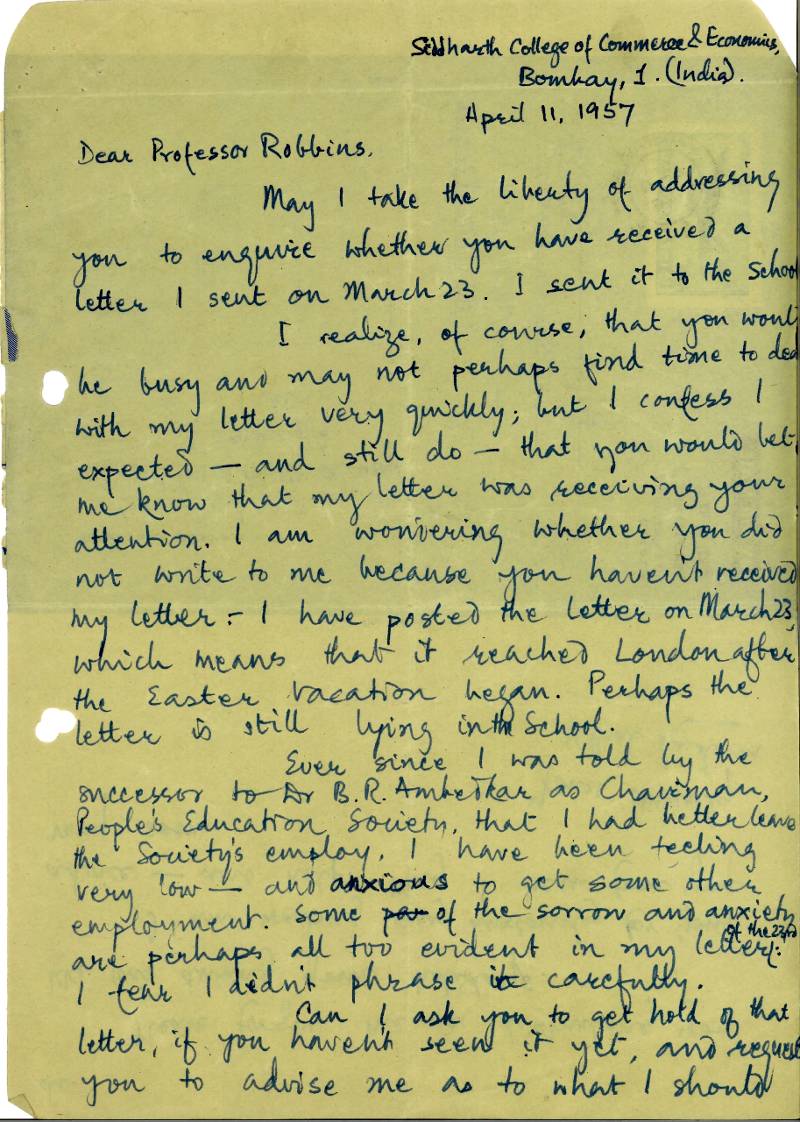 Siddharth College of Commerce & Economics,
Bombay, 1. (India).
April 11, 1957
Dear Professor Robbins,
May I take the liberty of addressing
you to enquire whether you have received a
letter I sent on March 23. I sent it to the School
I realize, of course, that you would
be busy and may not perhaps find time to deal
with my letter very quickly; but I confess I
expected — and still do — that you would let
me know that my letter was receiving your
attention. I am wondering whether you did
not write to me because you haven't received
my letter. – I have posted the letter on March 23,
which means that it reached London after
the Easter vacation began. Perhaps the
letter is still lying in the School.
Ever since I was told by the
successor to Dr B.R. Ambedkar as Chairman,
People's Education Society, that I had better leave
the Society's employ, I have been feeling
very low — and anxious to get some other
employment. Some par of the sorrow and anxiety
are perhaps all too evident in my letter of the 23rd:
I fear I didn't phrase it carefully.
Can I ask you to get hold of that
letter, if you haven't seen it yet, and request
you to advise me as to what I should